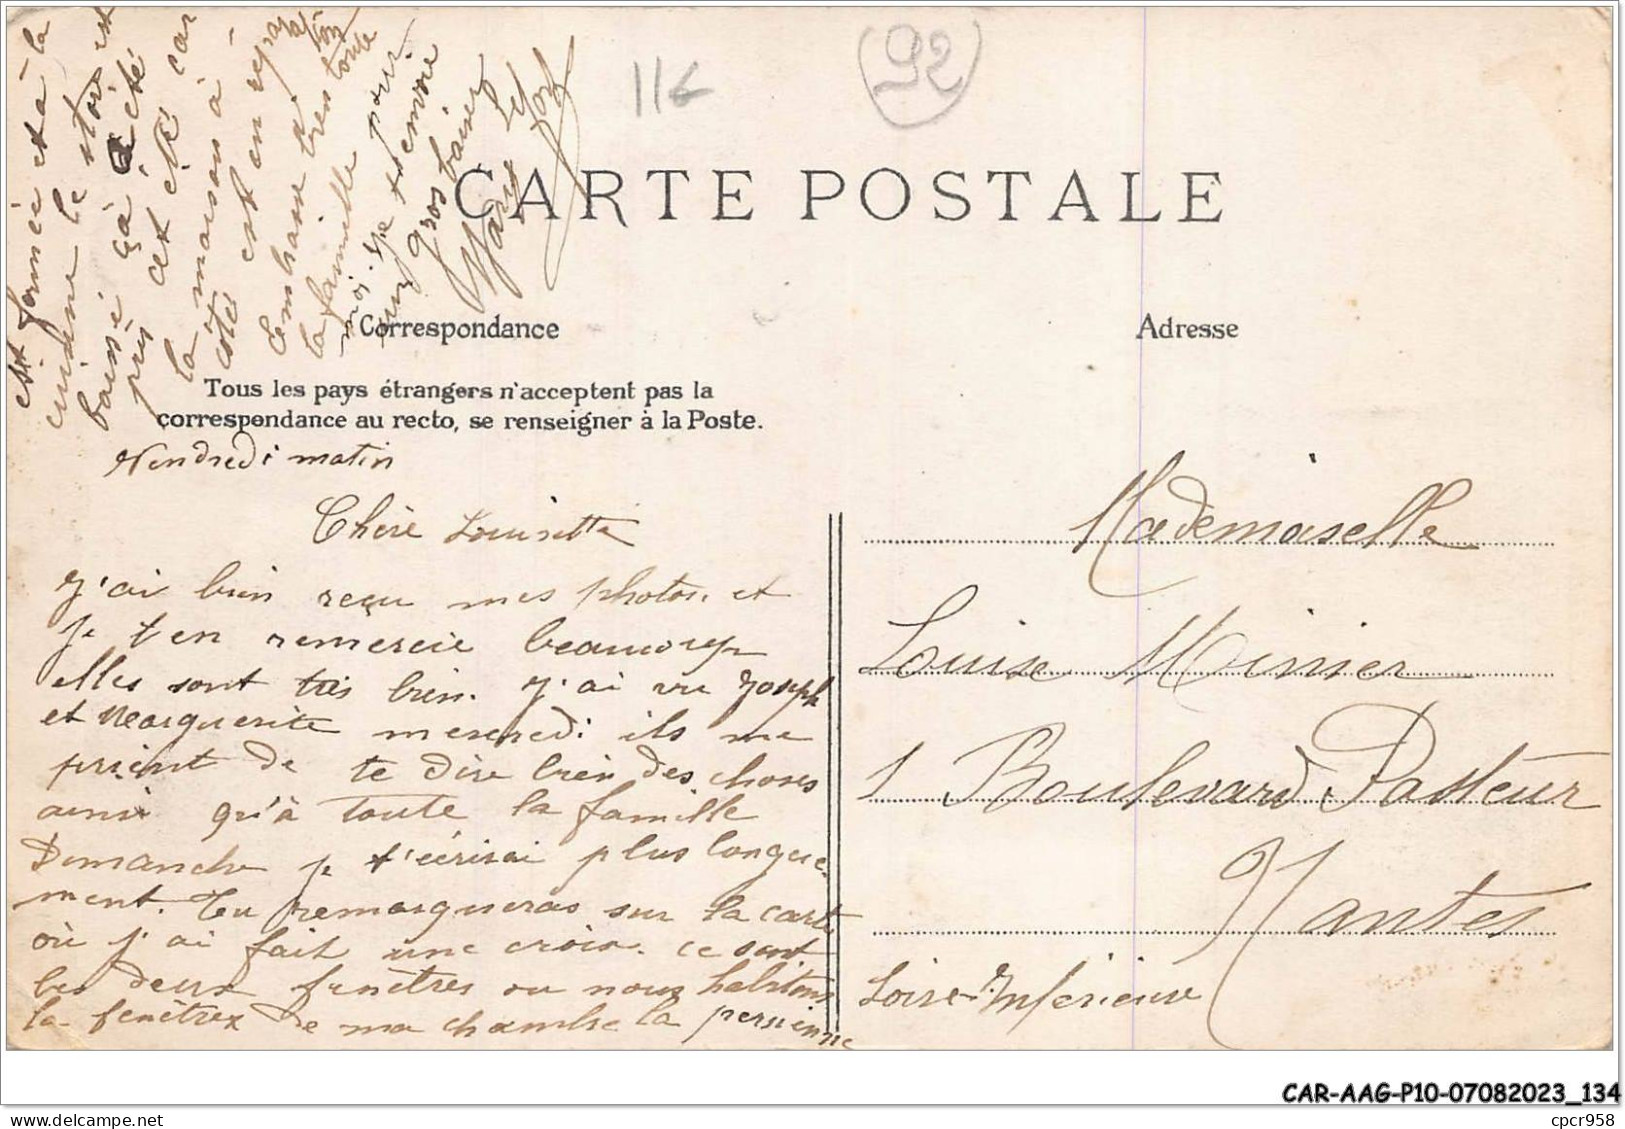 116
92
CARTE POSTALE
Correspondance
Adresse
Tous les pays étrangers n'acceptent pas la
correspondance au recto, se renseigner à la Poste.
Vendredi matin
Chère Louisette
J'ai bien reçu mes photos. et
je t'en remercie beaucoup
elles sont très bien. J'ai vu Joseph
et Marguerite mercredi ils me
prient de te dire bien des choses
ainsi qu'à toute la famille
Dimanche je t'écrirai plus longue-
ment. Tu remarqueras sur la carte
où j'ai fait une croix. ce sont
les deux fenêtres ou nous habitons
la fenêtre de ma chambre la persienne
est fermée et à la
cuisine le store est
baissé çà à été
pris cet été car
la maison à
côté est en reparation
J'embrasse très toute
la famille pour
moi. Je t'envoie
un gros baiser
Marie
Mademoiselle
Louise Minier
1 Boulevard Pasteur
Nantes
Loire-Inférieure
CAR-AAG-P10-07082023_134
cpcr958